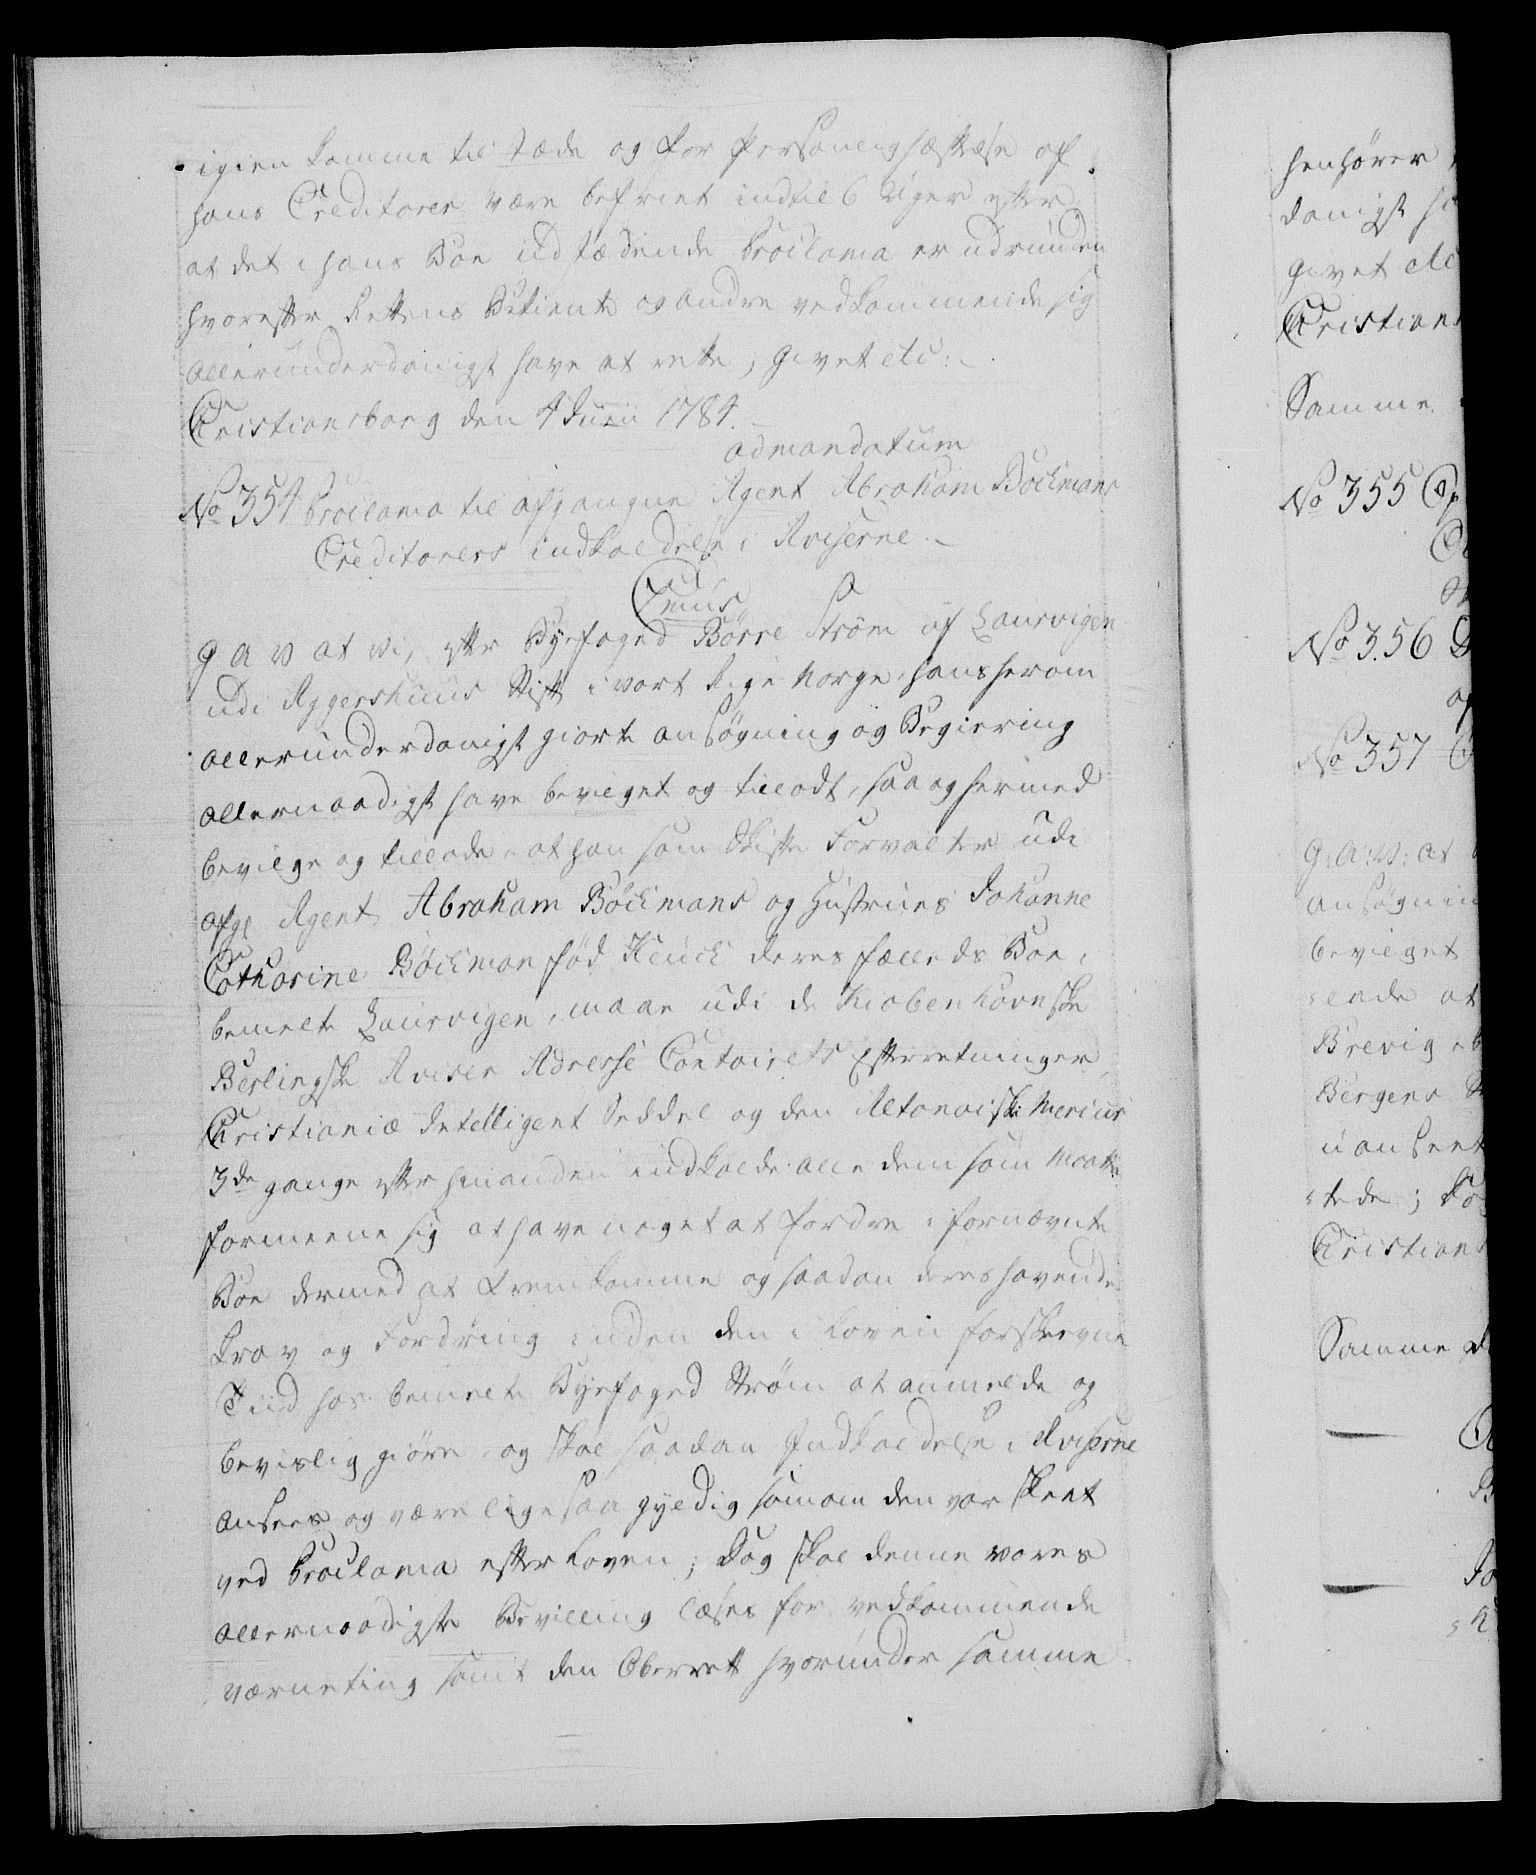 igien komme til stæde og for Personlig hæftelse af
hans Creditorer være befriet indtil 6 Uger efter
at det i hans Boe udstædende Proclama er udrunden
hvorefter Rettens Betiente og andre vedkommende sig
allerunderdanigst have at rette, Givet etc:
Christiansborg den 4 Junii 1784.
ad mandatum
No 354 Proclama til afgangne Agent Abraham Böckmans
Creditorers indkaldelse i Aviserne.
C7mus
G A V at vi, efter Byefoged Börre Ström af Laurvigen
udi Aggershuus Stift i vort Rige Norge, hans herom
allerunderdanigst giorte ansøgning og Begiering
allernaadigst have bevilget og tilladt, saa og hermed
bevilge og tillade at han som Skifte Forvalter udi
afg. Agent Abraham Böckmans og Hustrues Johanne
Catharine Böckman fød Heuch deres fælleds Boe i
bemelte Laurvigen, maae udi de Kiøbenhavnske
Berlingske Aviser Adresse Contoirets Efterretninger
Christianiæ Intelligent Seddel og den Altonaiske Mercur
3de gange efter hinanden indkalde alle dem som maatte
formeene sig at have noget at fordre i fornævnte
Boe dermed at fremkomme og saadan deres havende
krav og Fordring inden den i Loven forskrevne
Tiid hos bemelte Byefoged Strøm at anmelde og
bevislig giøre og skal saadan Indkaldelse i Aviserne
ansees og være ligesaa gyldig som om den var skeet
ved Proclama efter Loven; Dog skal denne vores
allernaadigste Bevilling læses for vedkommende
værneting samt den Oberrett hvorunder samme
henhører
danigst h
Givet etc
Christians
Samme
No 355
No 356
No 357
G: A: V: at
ansøgnin
bevilget
lade at
Brevig
Bergens
uanseet
stede; Do
Christians
Samme